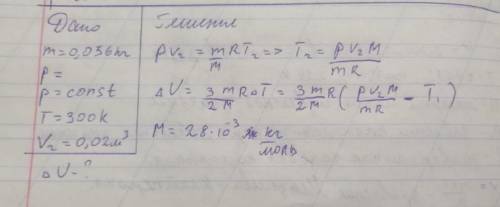 Дано
m=0,036кг
P=
p=const
T=300k
V₂=0,02м³
ΔU-?
Решение
pV₂ = m/M RT₂ => T₂ = pV₂M/mR
ΔU = 3/2 m/M RΔT = 3/2 m/M R (pV₂M/mR - T₁)
M = 28·10⁻³ кг/моль